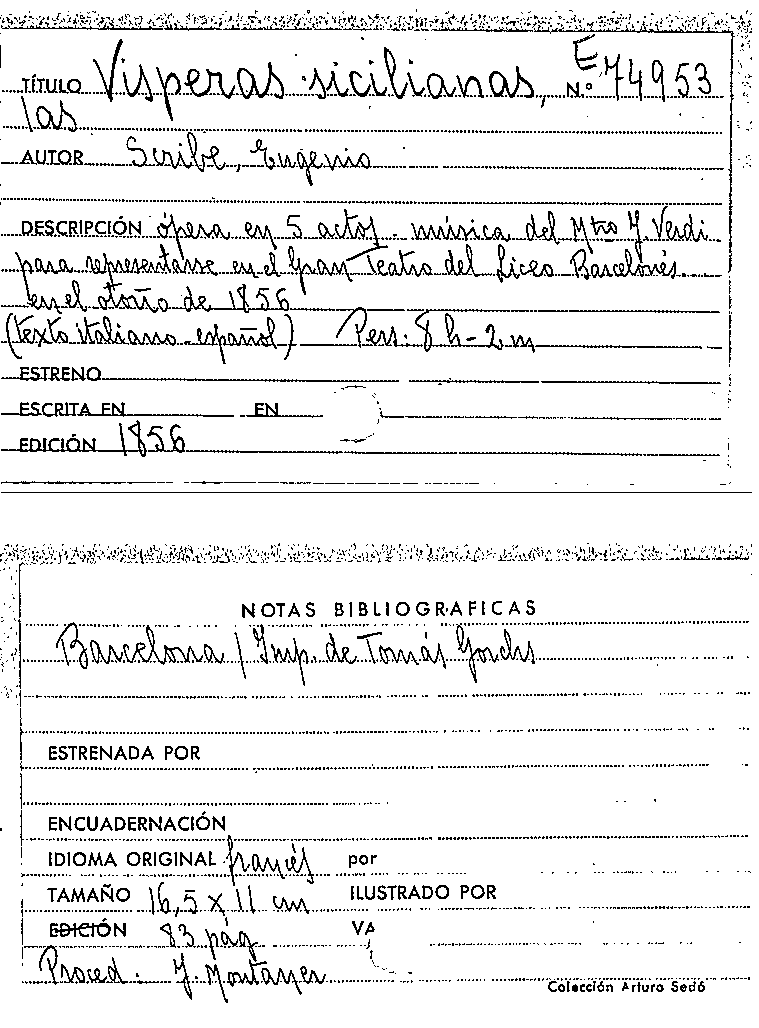 TÍTULO Vísperas sicilianas, E N.º 74953
las
AUTOR Scribe, Eugenio
DESCRIPCIÓN ópera en 5 actos - música del Mtro J. Verdi
para representarse en el Gran Teatro del Liceo Barcelonés
en el otoño de 1856
(texto italiano-español) Pers: 8 h - 2 m
ESTRENO
ESCRITA EN EN
EDICIÓN 1856
NOTAS BIBLIOGRAFICAS
Barcelona / Imp. de Tomás Gorchs
ESTRENADA POR
ENCUADERNACIÓN
IDIOMA ORIGINAL francés por
TAMAÑO 16,5 x 11 cm ILUSTRADO POR
EDICIÓN 83 pág VA
Proced. J. Montaner
Colección Arturo Sedó